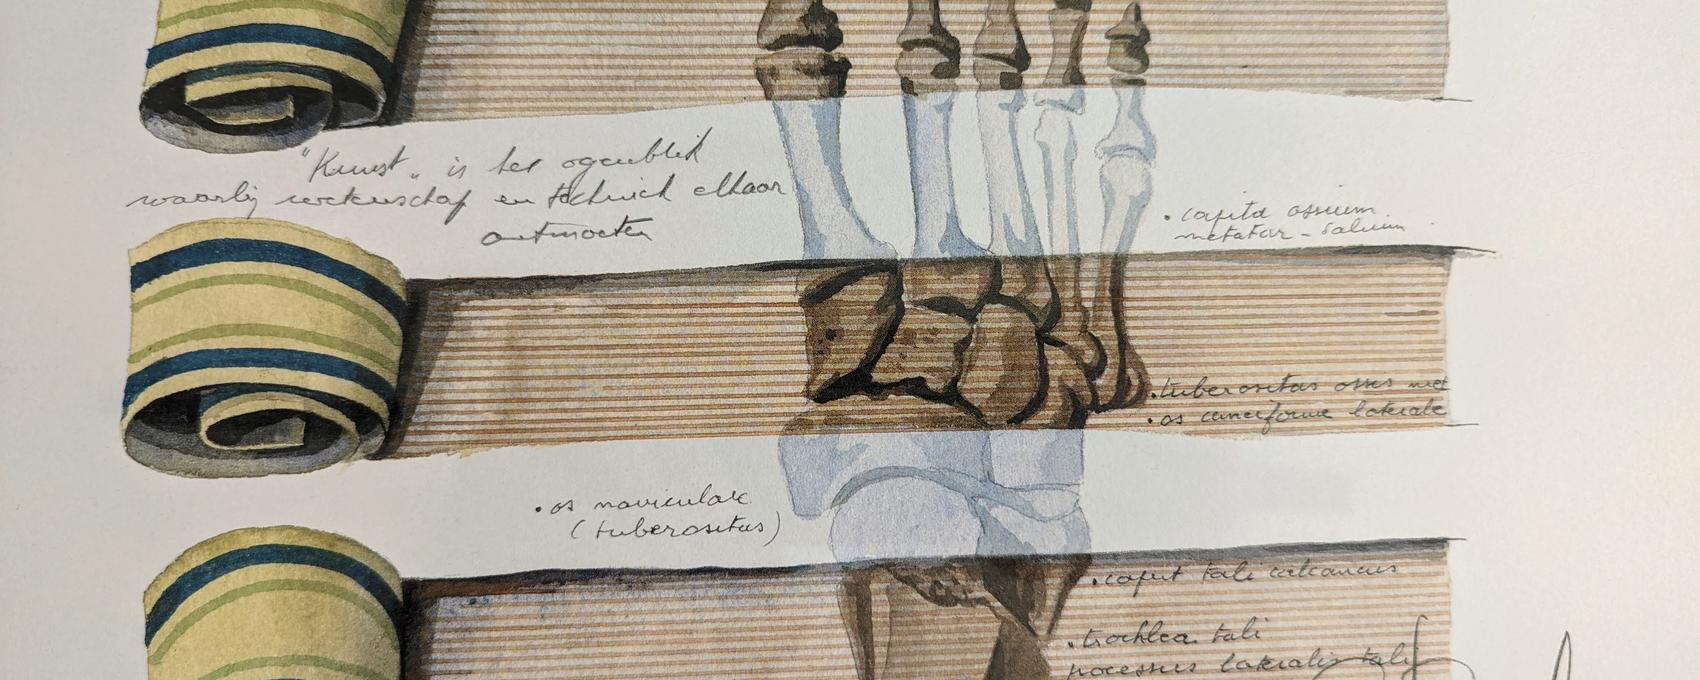 "Kunst„ is het ogenblik
waarbij wetenschap en techniek elkaar
ontmoeten
• capita ossium
metatar-salium
• tuberositas ossis met
• os cuneiforme laterale
• os naviculare
(tuberositas)
• caput tali calcaneus
• trochlea tali
processus lateralis tali